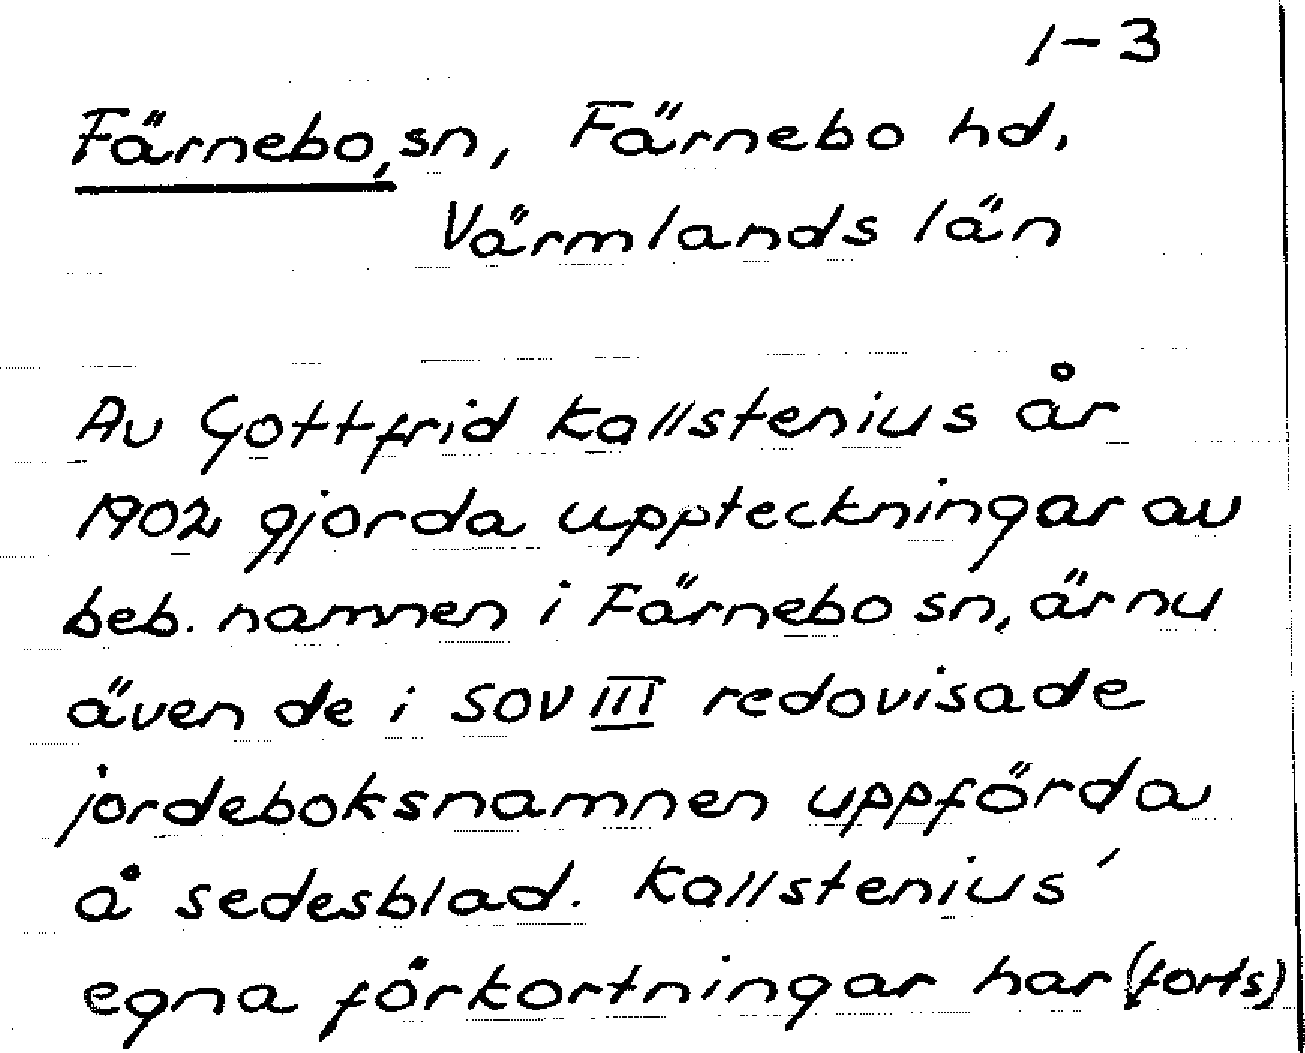 1-3
Färnebo, sn, Färnebo hd,
Värmlands län
Av Gottfrid Kallstenius år
1902 gjorda uppteckningar av
beb. namnen i Färnebo sn, är nu
även de i SOV III redovisade
jordeboksnamnen uppförda
å sedesblad. Kallstenius'
egna förkortningar har (forts)